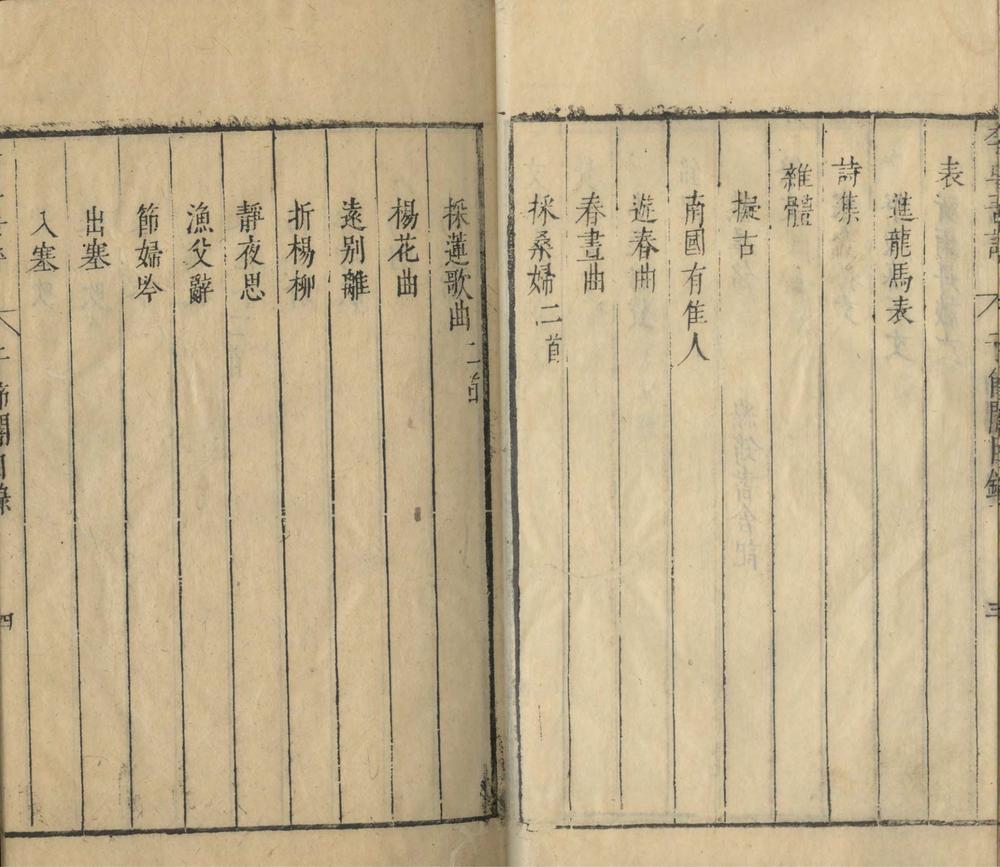 表
進龍馬表
詩集
雜體
擬古
南國有隹人
遊春曲
春晝曲
採桑婦二首
採蓮歌曲二首
楊花曲
遠别離
折楊柳
靜夜思
漁父辭
節婦吟
出塞
入塞
三
四